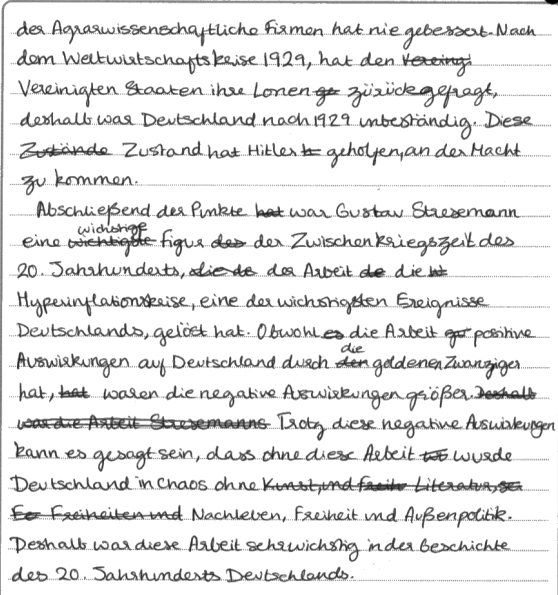 der Agrarwissenschaftliche Firmen hat nie gebessert. Nach
dem Weltwirtschaftskreise 1929, hat den Vereing
Vereinigten Staaten ihre Lonen ge zürückgefragt,
deshalb war Deutschland nach 1929 unbeständig. Diese
Zustände Zustand hat Hitler geholfen, an der Macht
zu kommen.
Abschließend der Punkte hat war Gustav Stresemann
wichstige
eine wichtigste figur des der Zwischenkriegszeit des
20. Jahrhunderts, die de der Arbeit de die
Hyperinflationskreise, eine der wichstigsten Ereignisse
Deutschlands, gelöst hat. Obwohl es die Arbeit positive
die
Auswirkungen auf Deutschland durch den goldenen Zwanziger
hat, hat waren die negative Auswirkungen größer. Deshalb
war die Arbeit Stresemanns Trotz diese negative Auswirkungen
kann es gesagt sein, dass ohne diese Arbeit wurde
Deutschland in Chaos ohne Kunst, und Freihe Literatur, se
Fre Freiheiten und Nachleben, Freiheit und Außenpolitik.
Deshalb war diese Arbeit sehr wichstig in der Geschichte
des 20. Jahrhunderts Deutschlands.